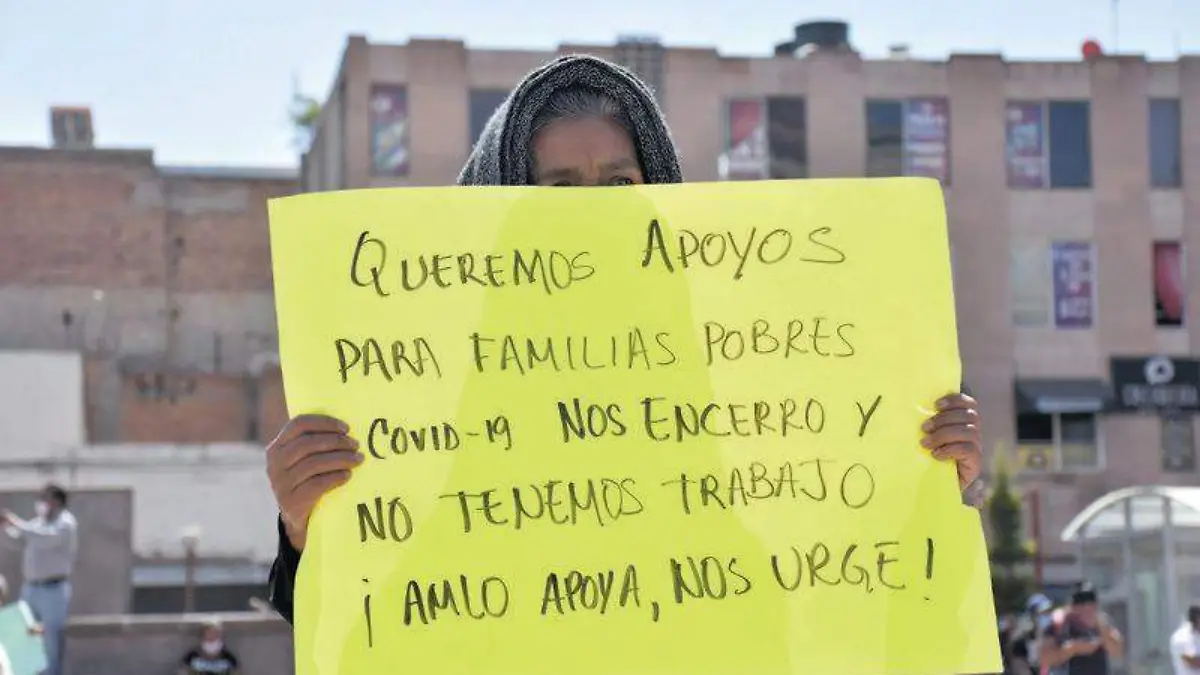 QUEREMOS APOYOS
PARA FAMILIAS POBRES
COVID-19 NOS ENCERRO Y
NO TENEMOS TRABAJO
¡ AMLO APOYA, NOS URGE !